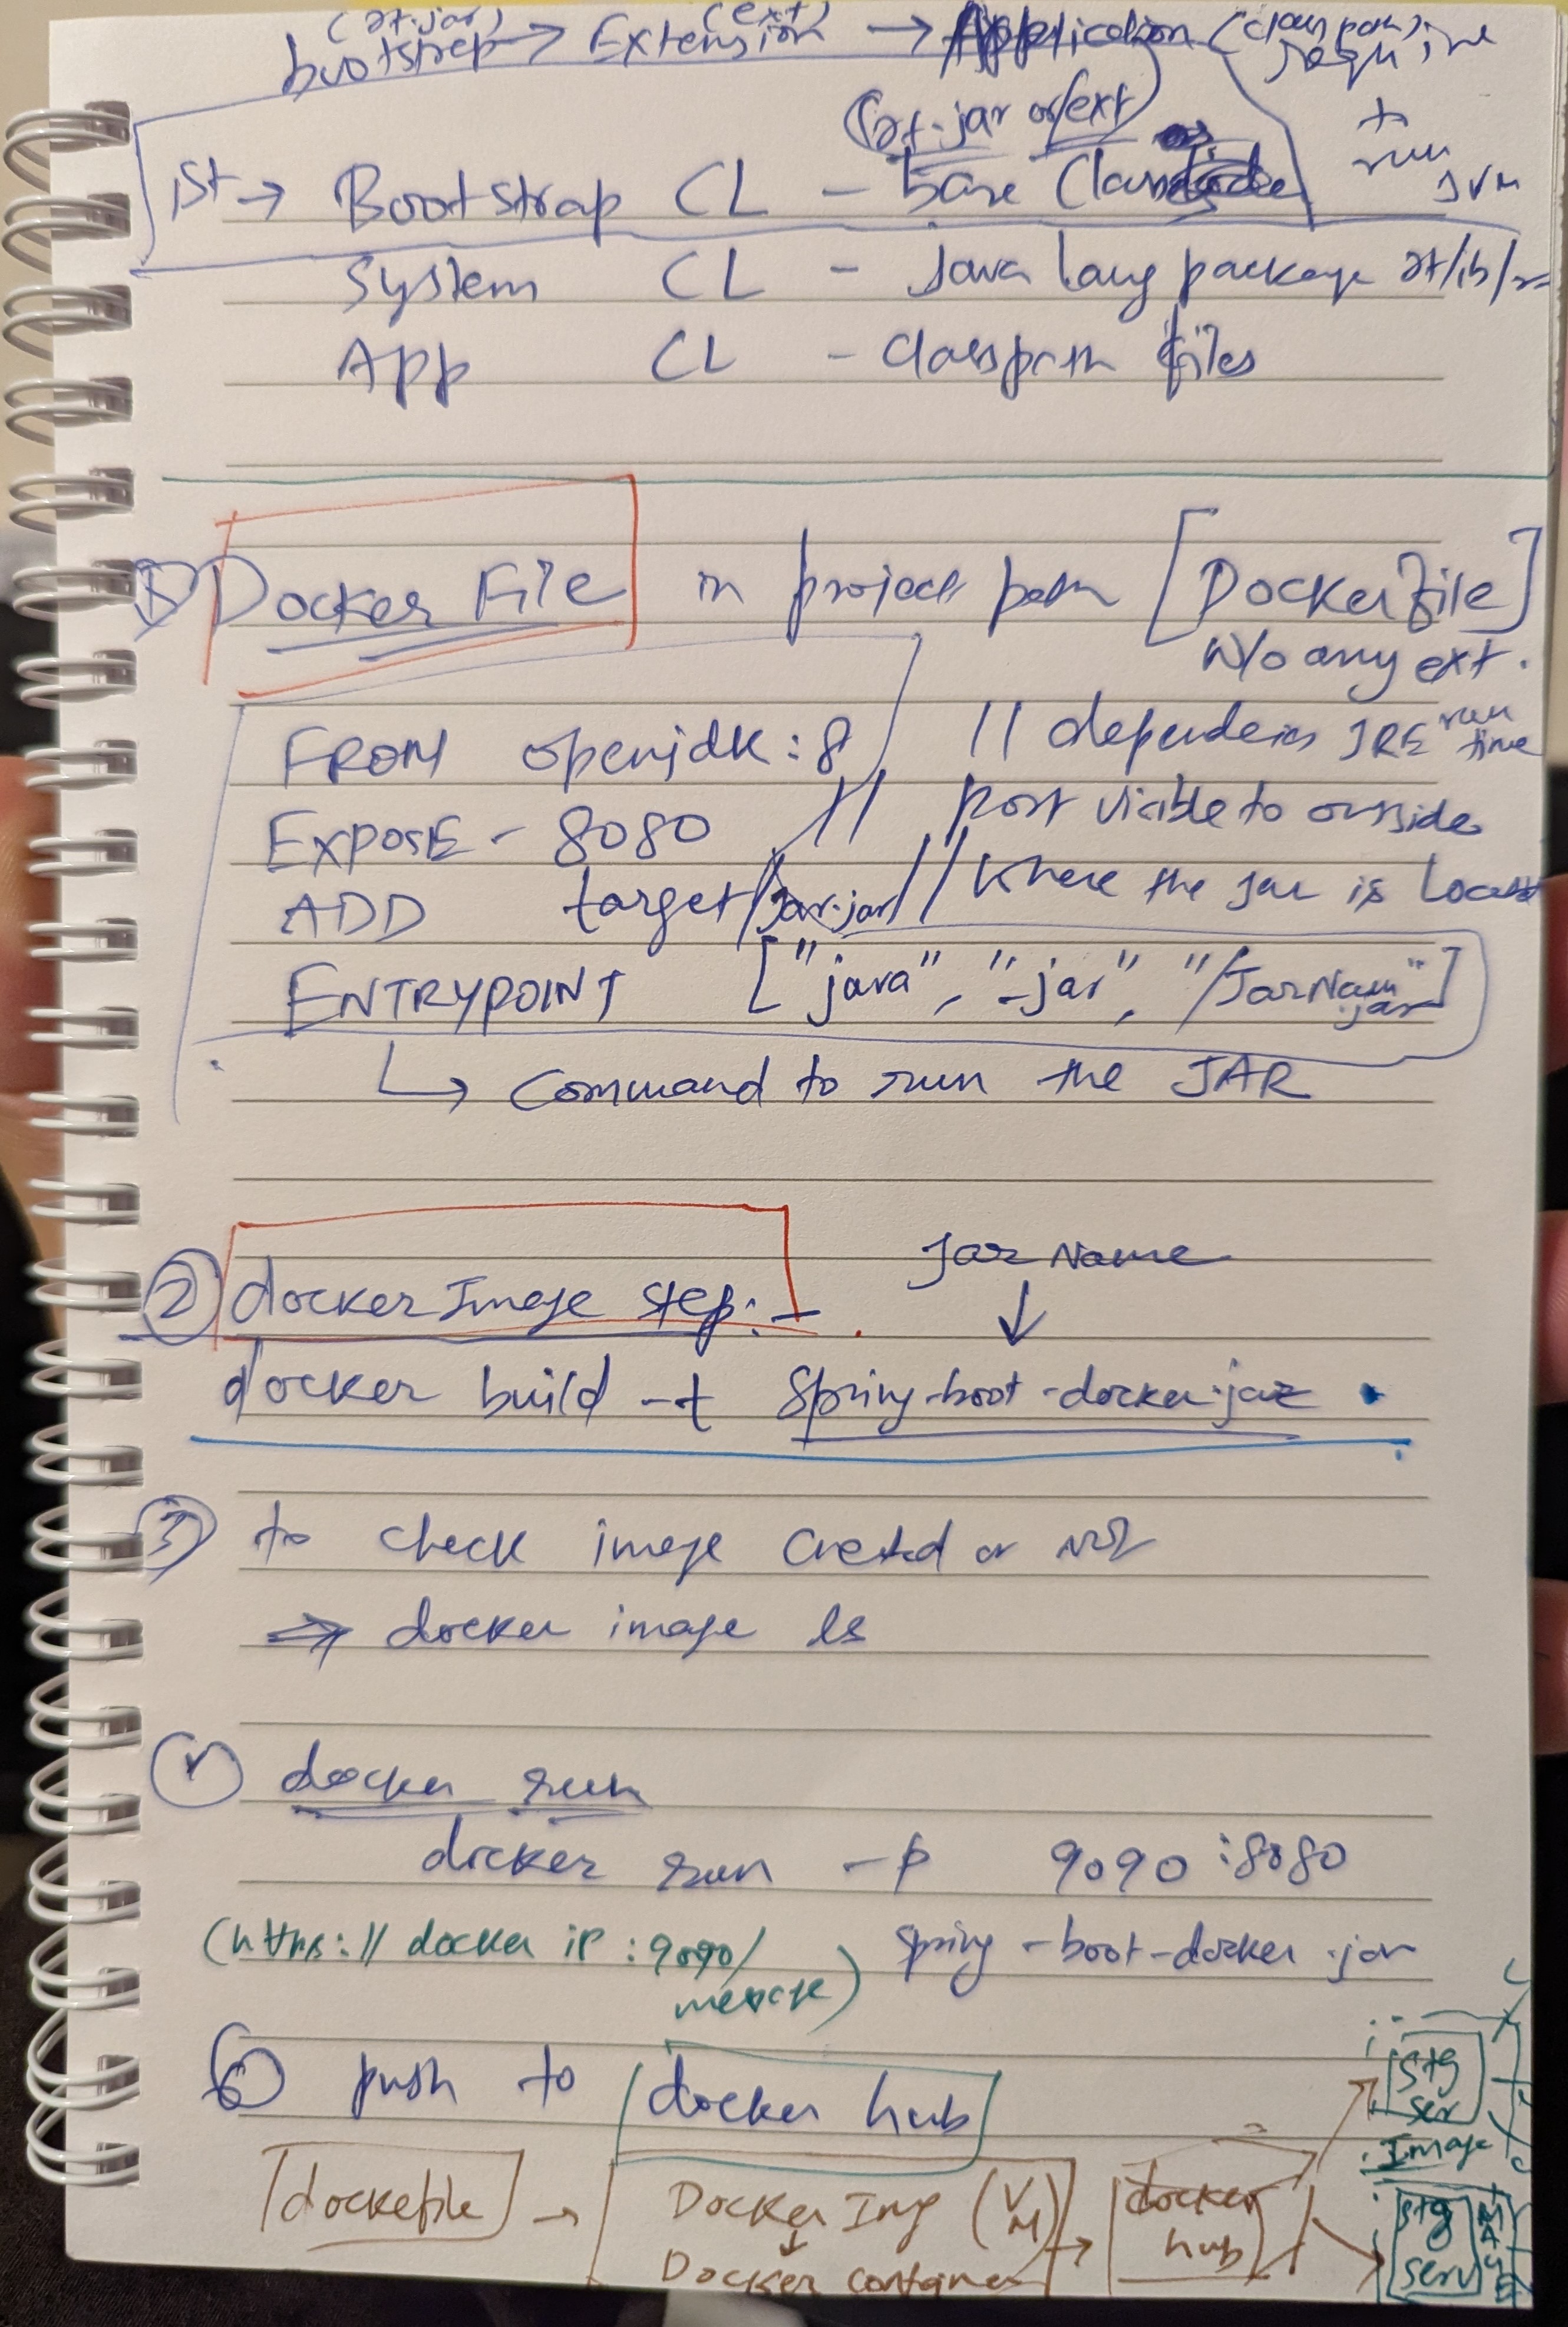 (rt.jar) (ext)
bootstrep → Extension → Application (class path)
require
+
run
JVM
(rt.jar or/ext)
1st → Bootstrap CL - base
System CL - Java lang package rt/lib/
App CL - Classpath files
① Docker File in project path [Dockerfile]
w/o any ext.
FROM openjdk:8 // dependencies JRE run time
EXPOSE - 8080 // Port visible to outside
ADD target/Jar.jar // where the Jar is Located
ENTRYPOINT ["java", "-jar", "/JarName.jar"]
↳ Command to run the JAR
Jar Name
↓
② docker Image step:-
docker build -t Spring-boot-docker.jar .
③ to check image Created or Not
⇒ docker image ls
④ docker run
docker run -p 9090:8080
(https:// docker ip :9090/ message) spring-boot-docker.jar
push to docker hub
stg ser
Image
dockefile → Docker Img (VM) → docker hub
↓
Docker container
stg serv
IMAGE